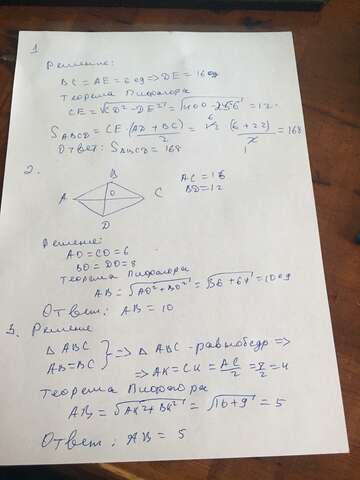 1
Решение:
BC = AE = 6 ед => DE = 16 ед
Теорема Пифагора
CE = √CD² - DE² = √400 - 256 = 12
SABCD = CE · (AD + BC) / 2 = 12 6 (6 + 22) / 2 = 168
Ответ: SABCD = 168
2.
B
A O C
D
AC = 16
BD = 12
Решение:
AO = CO = 6
BO = DO = 8
Теорема Пифагора
AB = √AO² + BO² = √36 + 64 = 10 ед
Ответ: AB = 10
3. Решение
△ ABC
AB = BC } => △ ABC - равнобедр =>
=> AK = CK = AC / 2 = 8 / 2 = 4
Теорема Пифагора
AB = √AK² + BK² = √16 + 9 = 5
Ответ: AB = 5